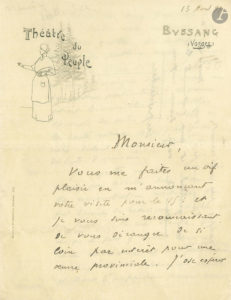 Théâtre
du
Peuple
BUSSANG
(Vosges)
Monsieur,
Vous me faites un vif
plaisir en m'annonçant
votre visite pour le 15 : et
je vous suis reconnaissant
de vous déranger de si
loin par intérêt pour une
œuvre provinciale. J'ose espérer